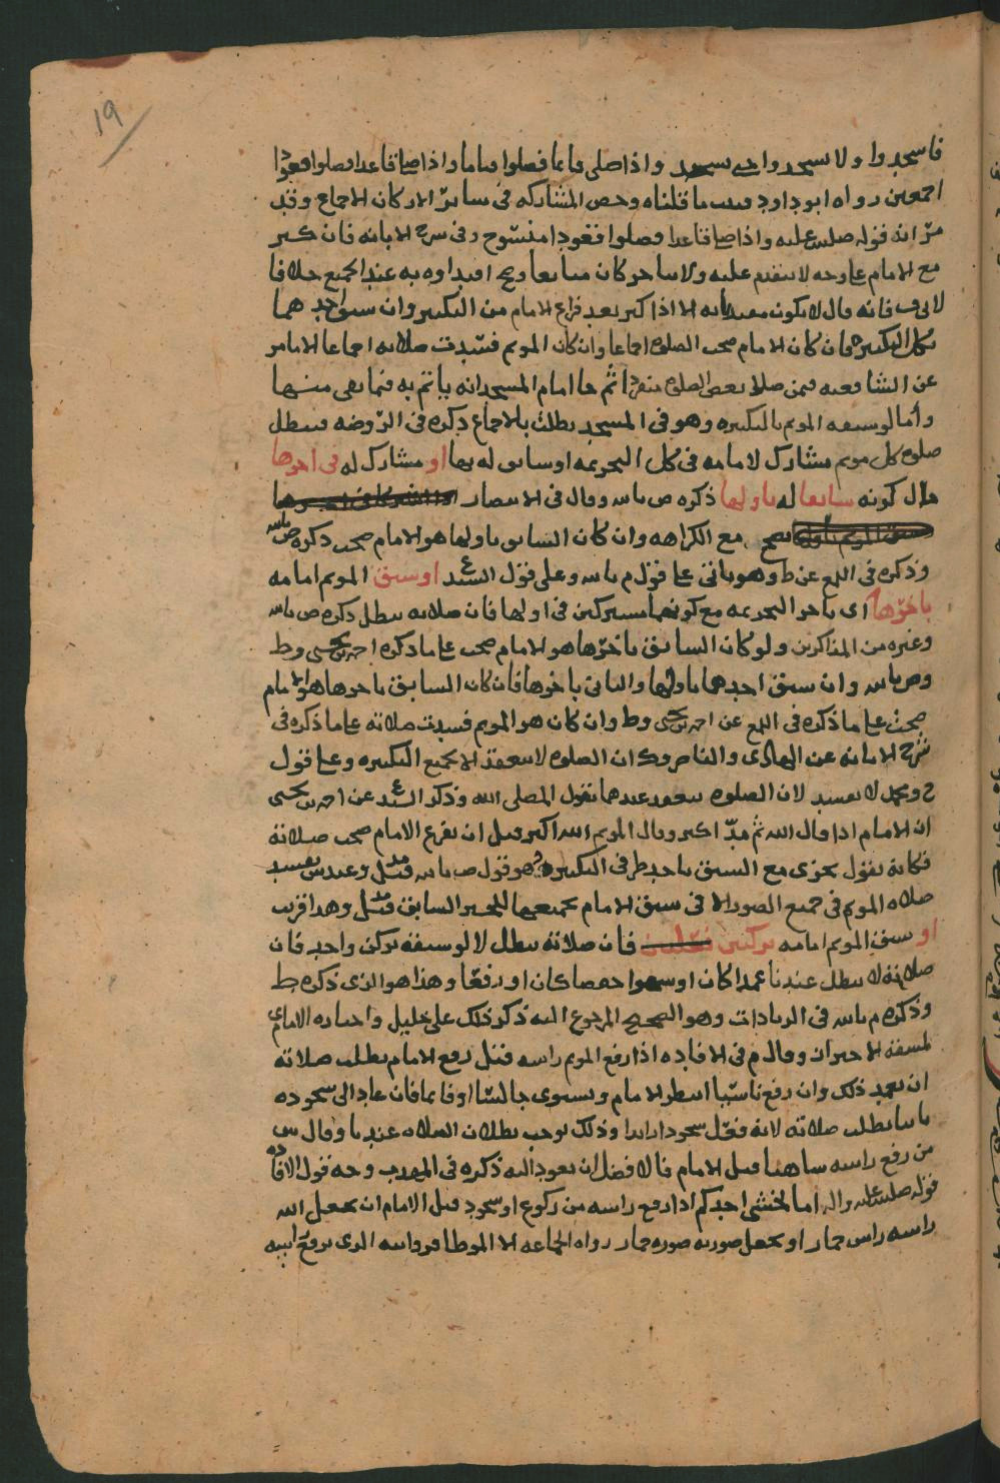 19
فاسجدوا ولا تسجدوا حتى يسجد واذا صلى قائما فصلوا قياما واذا صلى قاعدا فصلوا قعودا
اجمعين رواه ابو داود قلناه وخص المشاركه في سائر الاركان الاجماع وقد
مرّ ان قوله صلى عليه واذا صلى قاعدا فصلوا قعودا منسوخ وفي شرح الابانه فان كبر
مع الامام على وجه لا يتقدم عليه ولا يتاخر كان متابعا وصح اقتداوه به عند الجميع خلافا
فانه قال لا يكون مقتديا به الا اذا كبر بعد فراغ الامام من التكبير وان سبق احدهما
بكل التكبيره فان كان الامام صحت الصلوه اجماعا وان كان الموتم فسدت صلاته اجماعا الا ما مر
عن الشافعيه فيمن صلا بعض الصلوه منفردا ثم جا امام المسجد انه ياتم به فيما بقي منها
واما لو سبقه الموتم بالتكبيره وهو في المسجد بطلت بالاجماع ذكره في الروضه فتبطل
صلوه كل موتم مشارك لامامه في كل التحريمه او سابق له بها او مشارك له في اخرها
حال كونه سابقا له باولها ذكره ص بالله وقال في الانتصار
يصح مع الكراهه وان كان السابق باولها هو الامام صحت ذكره ص بالله
وذكره في اللمع عن ط وهو ياتي على قول م بالله وعلى قول السيد او سبق الموتم امامه
باخرها اي باخر التحريمه مع كونهما مشتركين في اولها فان صلاته تبطل ذكره ص بالله
وغيره من المذاكرين ولو كان السابق باخرها هو الامام صحت على ما ذكره احمد بن يحيى وط
وص بالله وان سبق احدهما باولها والثاني باخرها فان كان السابق باخرها هو الامام
صحت على ما ذكره في اللمع عن احمد بن يحيى وط وان كان هو الموتم فسدت صلاته على ما ذكره في
شرح الابانه عن الهادي والناصر وك ان الصلوه لا تنعقد الا بجميع التكبيره وعلى قول
ح ومحمد لا تفسد لان الصلوه تنعقد عندهما بقول المصلي الله وذكر السيد عن احمد بن يحيى
ان الامام اذا قال الله ثم مدّ اكبر وقال الموتم الله اكبر قبل ان يفرغ الامام صحت صلاته
فكانه يقول يجزي مع السبق باحد طرفي التكبيره وهو قول ص بالله قيل وعند س تفسد
صلاه الموتم في جميع الصور الا في سبق الامام بجميعها السابق قيل وهذا اقرب
او سبق الموتم امامه بركنين فان صلاته تبطل لا لو سبقه بركن واحد فان
صلاته لا تبطل عندنا عمدا كان او سهوا خفضا كان او رفعا وهذا هو الذي ذكره ط
وذكره م بالله في الزيادات وهو الصحيح المرجوع اليه ذكر ذلك علي خليل واختاره الامام ى
لمسفه الاحيران وقال م في الافاده اذا رفع الموتم راسه قبل رفع الامام بطلت صلاته
ان تعمد ذلك وان رفع ناسيا انتظر الامام ويستوى جالسا او قائما فان عاد الى سجوده
ناسيا بطلت صلاته لانه فعل سجودا زائدا وذلك يوجب بطلان الصلاه عندنا وقال س
من رفع راسه ساهيا قبل الامام فالافضل ان يعود اليه ذكره في المهذب وجه قول الافاده
قوله صلى عليه واله اما يخشى احدكم اذا رفع راسه من ركوع او سجود قبل الامام ان يجعل الله
راسه راس حمار او يجعل صورته صوره حمار رواه الجماعه الا الموطا فروايته الذي يرفع راسه